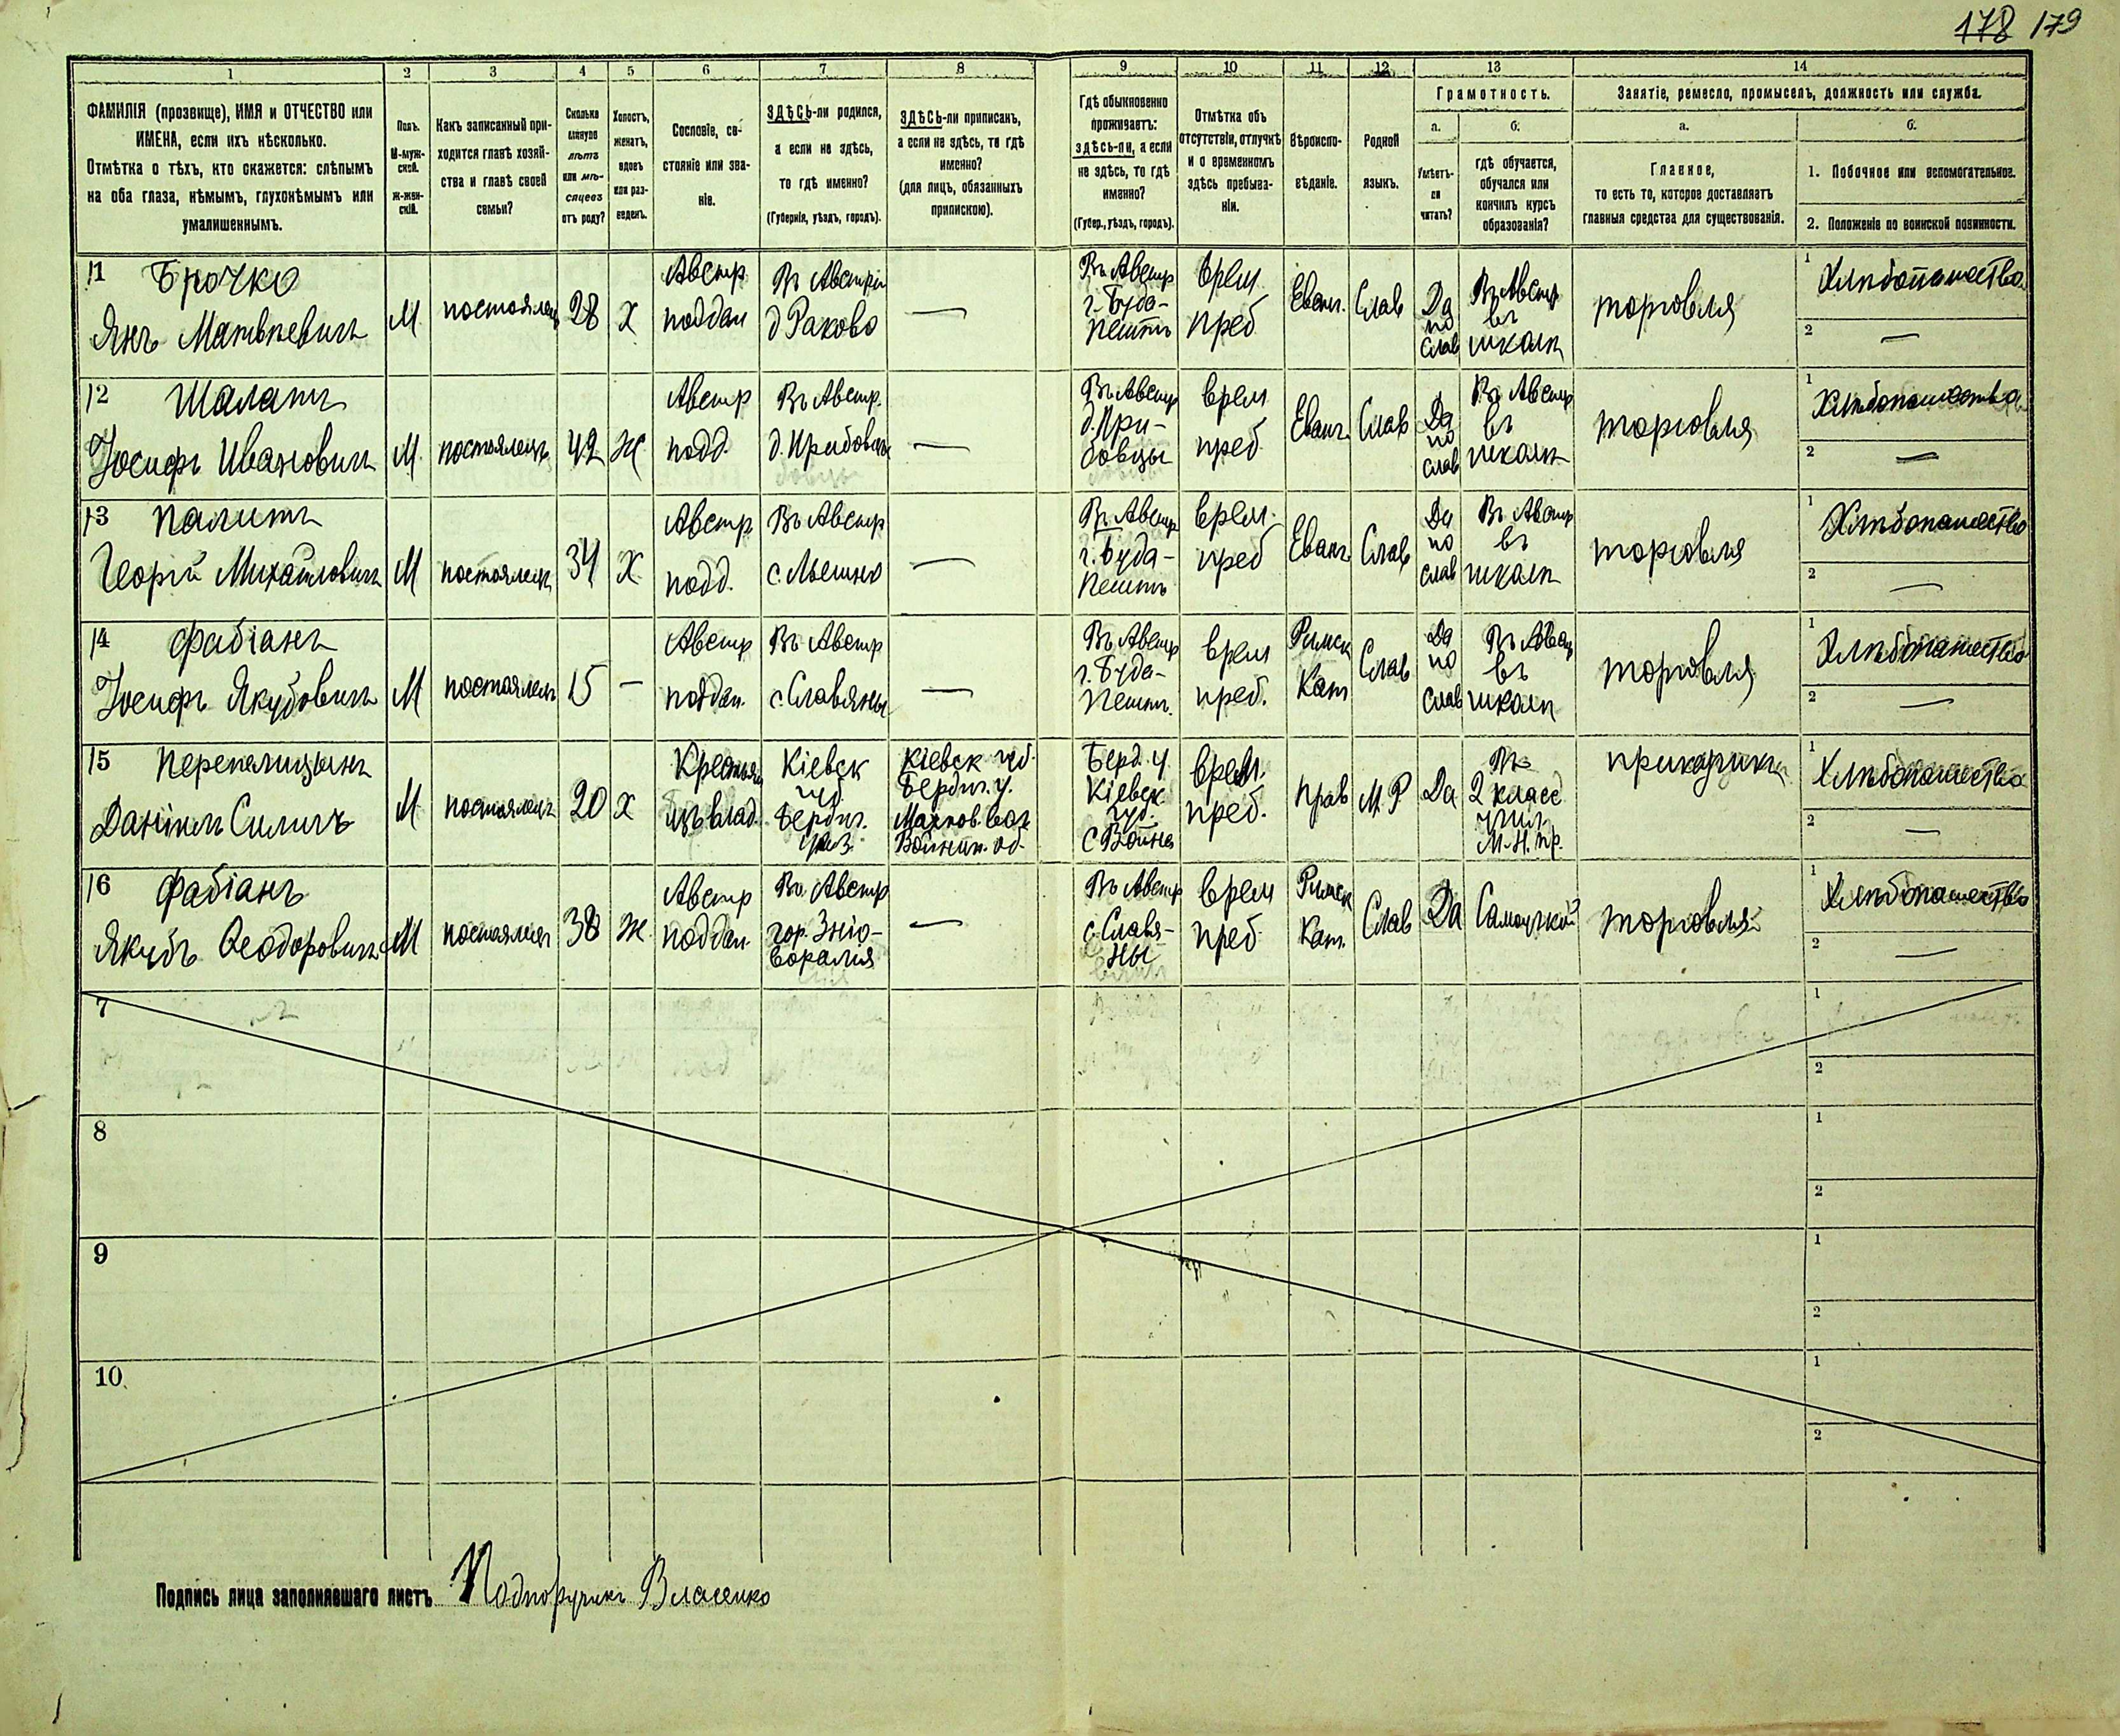 178 179
1 2 3 4 5 6 7 8 9 10 11 12 13 14
ФАМИЛІЯ (прозвище), ИМЯ и ОТЧЕСТВО или
ИМЕНА, если ихъ нѣсколько.
Отмѣтка о тѣхъ, кто скажется: слѣпымъ
на оба глаза, нѣмымъ, глухонѣмымъ или
умалишеннымъ.
Полъ.
М-муж-
ской.
ж-жен-
скій.
Какъ записанный при-
ходится главѣ хозяй-
ства и главѣ своей
семьи?
Сколько
минуло
лѣтъ
или мѣ-
сяцевъ
отъ роду?
Холостъ,
женатъ,
вдовъ
или раз-
веденъ.
Сословіе, со-
стояніе или зва-
ніе.
ЗДѢСЬ-ли родился,
а если не здѣсь,
то гдѣ именно?
(Губернія, уѣздъ, городъ).
ЗДѢСЬ-ли приписанъ,
а если не здѣсь, то гдѣ
именно?
(для лицъ, обязанныхъ
припискою).
Гдѣ обыкновенно
проживаетъ:
здѣсь-ли, а если
не здѣсь, то гдѣ
именно?
(Губер., уѣздъ, городъ).
Отмѣтка объ
отсутствіи, отлучкѣ
и о временномъ
здѣсь пребыва-
ніи.
Вѣроиспо-
вѣданіе.
Родной
языкъ.
Грамотность.
а.
Умѣетъ-
ли
читать?
б.
гдѣ обучается,
обучался или
кончилъ курсъ
образованія?
Занятіе, ремесло, промыселъ, должность или служба.
а.
Главное,
то есть то, которое доставляетъ
главныя средства для существованія.
б.
1. Побочное или вспомогательное.
2. Положеніе по воинской повинности.
11 Брочко
Янъ Матвѣевичъ
М
постоялецъ
28
Х
Австр
поддан
Въ Австріи
д Раково
—
Въ Австр
г. Буда-
Пештъ
Врем
преб
Еванг.
Слав
Да
по
слав
Въ Австр
въ
школѣ
торговля
1 Хлѣбопашество
2 —
12 Шалатъ
Іосифъ Ивановичъ
М
постоялецъ
42
Ж
Австр
подд.
Въ Австр.
—
Въ Австр
д. При-
бовцы
Врем
преб
Еванг.
Слав
Да
по
слав
Въ Австр
въ
школѣ
торговля
1 Хлѣбопашество
2 —
13 Палитъ
Георгій Михайловичъ
М
постоялецъ
34
Х
Австр
подд.
Въ Австр
—
Въ Австр
г. Буда-
Пештъ
Врем.
преб
Еванг.
Слав
Да
по
слав
Въ Австр
въ
школѣ
торговля
1 Хлѣбопашество
2 —
14 Фабіанъ
Іосифъ Якубовичъ
М
постоялецъ
15
—
Австр
поддан.
Въ Австр
с. Славяны
—
Въ Австр
г. Буда-
Пештъ.
Врем
преб.
Римск
Кат
Слав
Да
по
слав
Въ Австр
въ
школѣ
торговля
1 Хлѣбопашество
2 —
15 Перепелицынъ
Даніилъ Силичъ
М
постоялецъ
20
Х
Крестьян
изъ влад.
Кіевск
губ.
Бердич.
уѣз.
Кіевск губ.
Бердич. у.
Махнов. вол
Берд. у.
Кіевск
губ.
Врем.
преб.
прав
М. Р
Да
Въ
2 класс
учил
М. Н. пр.
прикащикъ
1 Хлѣбопашество
2 —
16 Фабіанъ
Якубъ Ѳеодоровичъ
М
постоялецъ
38
Ж
Австр
поддан.
Въ Австр
гор. Зніо-
воралія
—
Въ Австр
с. Славя-
ны
Врем
преб
Римск
Кат.
Слав
Да
Самоучкой
торговля
1 Хлѣбопашество
2 —
7
1
2
8
1
2
9
1
2
10
1
2
Подпись лица заполнявшаго листъ Подпоручикъ Власенко